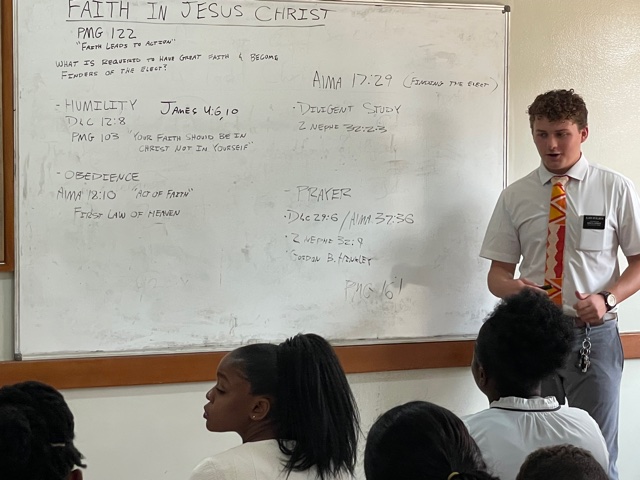 FAITH IN JESUS CHRIST
PMG 122
"FAITH LEADS TO ACTION"
WHAT IS REQUIRED TO HAVE GREAT FAITH & BECOME
FINDERS OF THE ELECT?
- HUMILITY JAMES 4:6,10
D&C 12:8
PMG 103 "YOUR FAITH SHOULD BE IN
CHRIST NOT IN YOURSELF"
- OBEDIENCE
ALMA 18:10 "ACT OF FAITH"
FIRST LAW OF HEAVEN
ALMA 17:29 (FINDING THE ELECT)
- DIVIGENT STUDY
2 NEPHI 32:2-3
- PRAYER
• D&C 29:6 / ALMA 37:36
• 2 NEPHI 32:9
• GORDON B. HINCKLEY
PMG 161